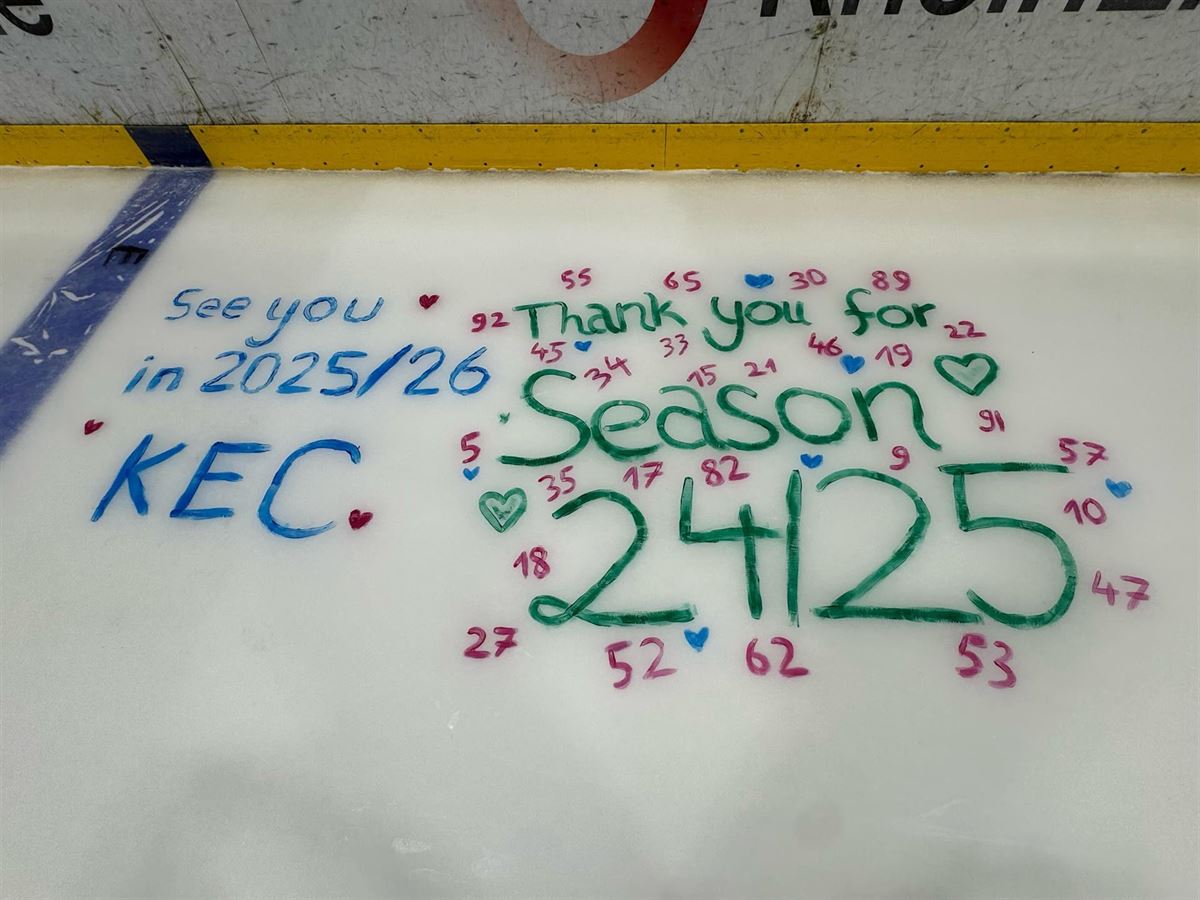 See you
in 2025/26
KEC
55 65 30 89
92 Thank you for 22
45 33 46 19
34 15 21
Season
91
5 35 17 82 9 57
24/25
10
18
47
27 52 62 53
E